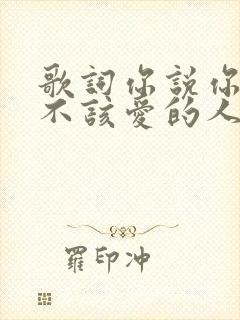 歌詞你説你
不該愛的人
羅印冲